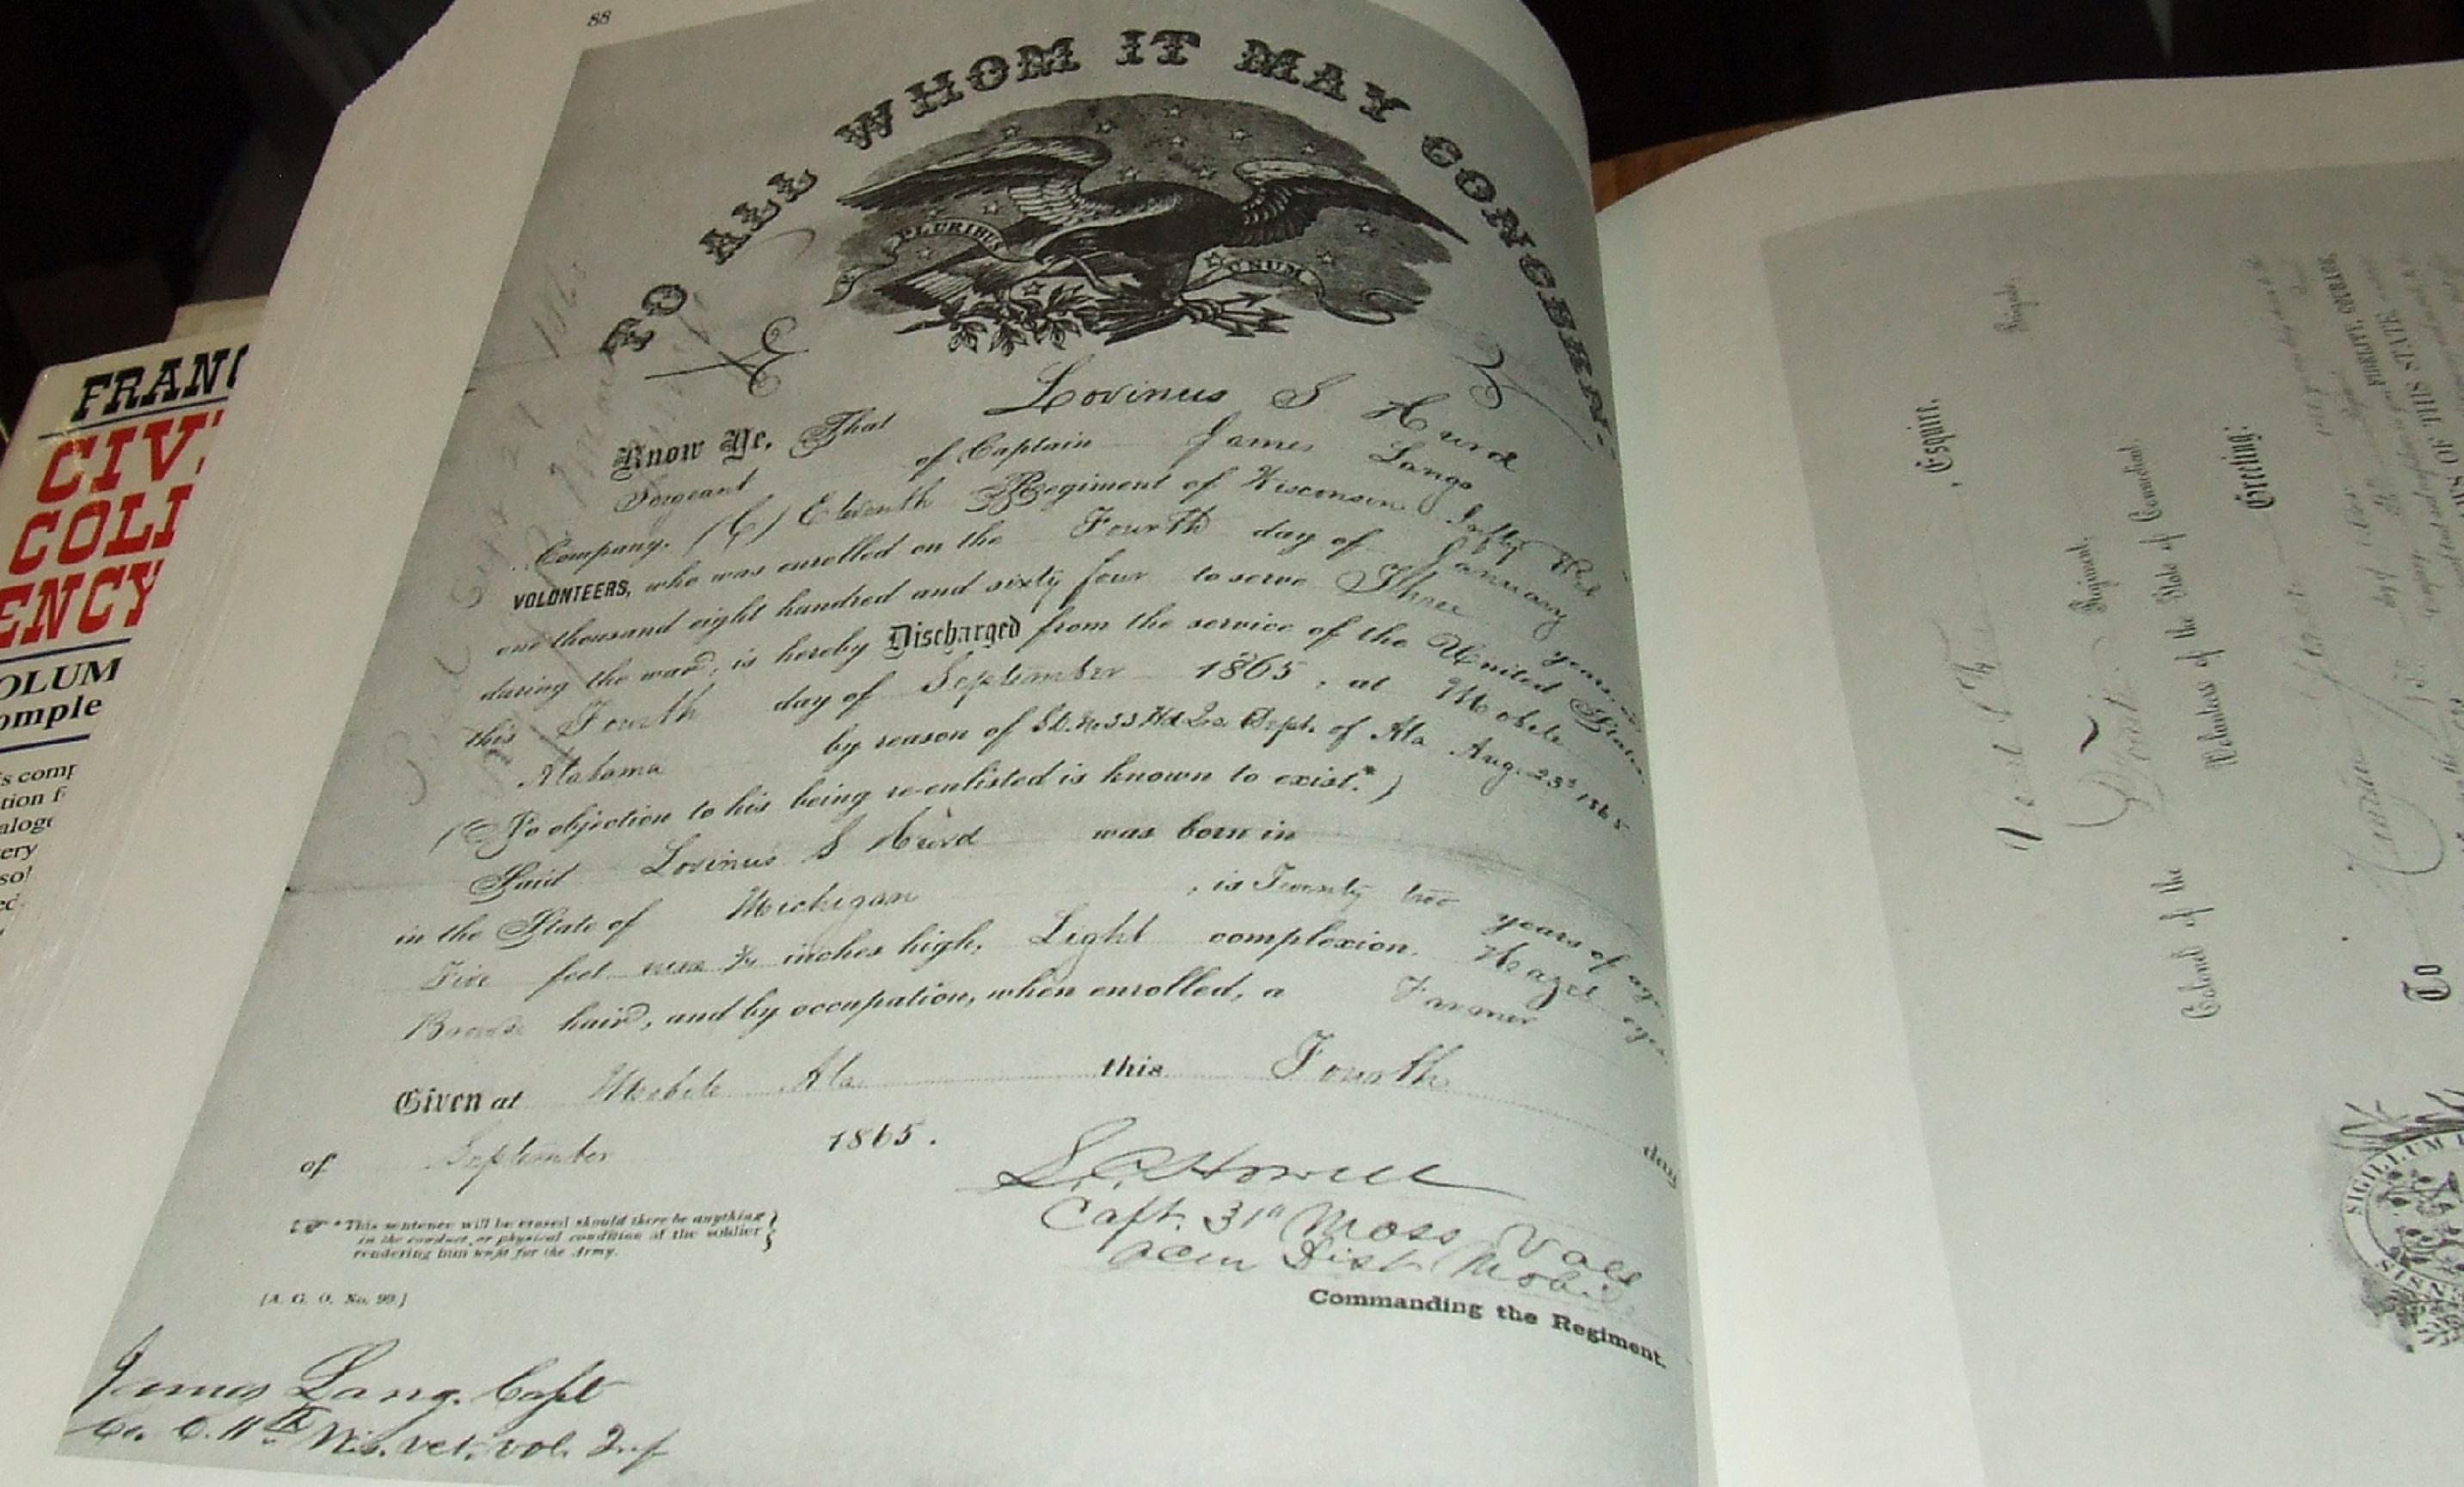 88
TO ALL WHOM IT MAY CONCERN.
E PLURIBUS UNUM
Know Ye, That Lovinus S Hurd
Sergeant of Captain James Langs
Company, (C) Eleventh Regiment of Wisconsin Inftry Vet
VOLUNTEERS, who was enrolled on the Fourth day of January
one thousand eight hundred and sixty four to serve Three years or
during the war, is hereby Discharged from the service of the United States
this Fourth day of September 1865, at Mobile
Alabama by reason of Hd Qrs Dept. of Ala Aug. 23d 1865
(No objection to his being re-enlisted is known to exist.*)
Said Lovinus S Hurd was born in
in the State of Michigan, is Twenty two years of age
Five feet inches high, Light complexion, Hazel eyes
Brown hair, and by occupation, when enrolled, a Farmer
Given at Mobile Ala this Fourth day
of September 1865.
S.C. Howell
Capt. 31st Mass Vols
Acm Dist Mobile
Commanding the Regiment.
*This sentence will be erased should there be anything
in the conduct or physical condition of the soldier
rendering him unfit for the Army.
[A. G. O. No. 99.]
James Lang. Capt
Co. C. 11th Wis. vet. vol. Inf
FRANC
CIV
COLL
ENCY
OLUM
omple
s comp
tion f
alogu
ery
so
ed
Esquire,
Brigade
Regiment,
Volunteers of the State of Connecticut,
Greeting:
Colonel of the
To
LAWS OF THIS STATE
SIGILLUM